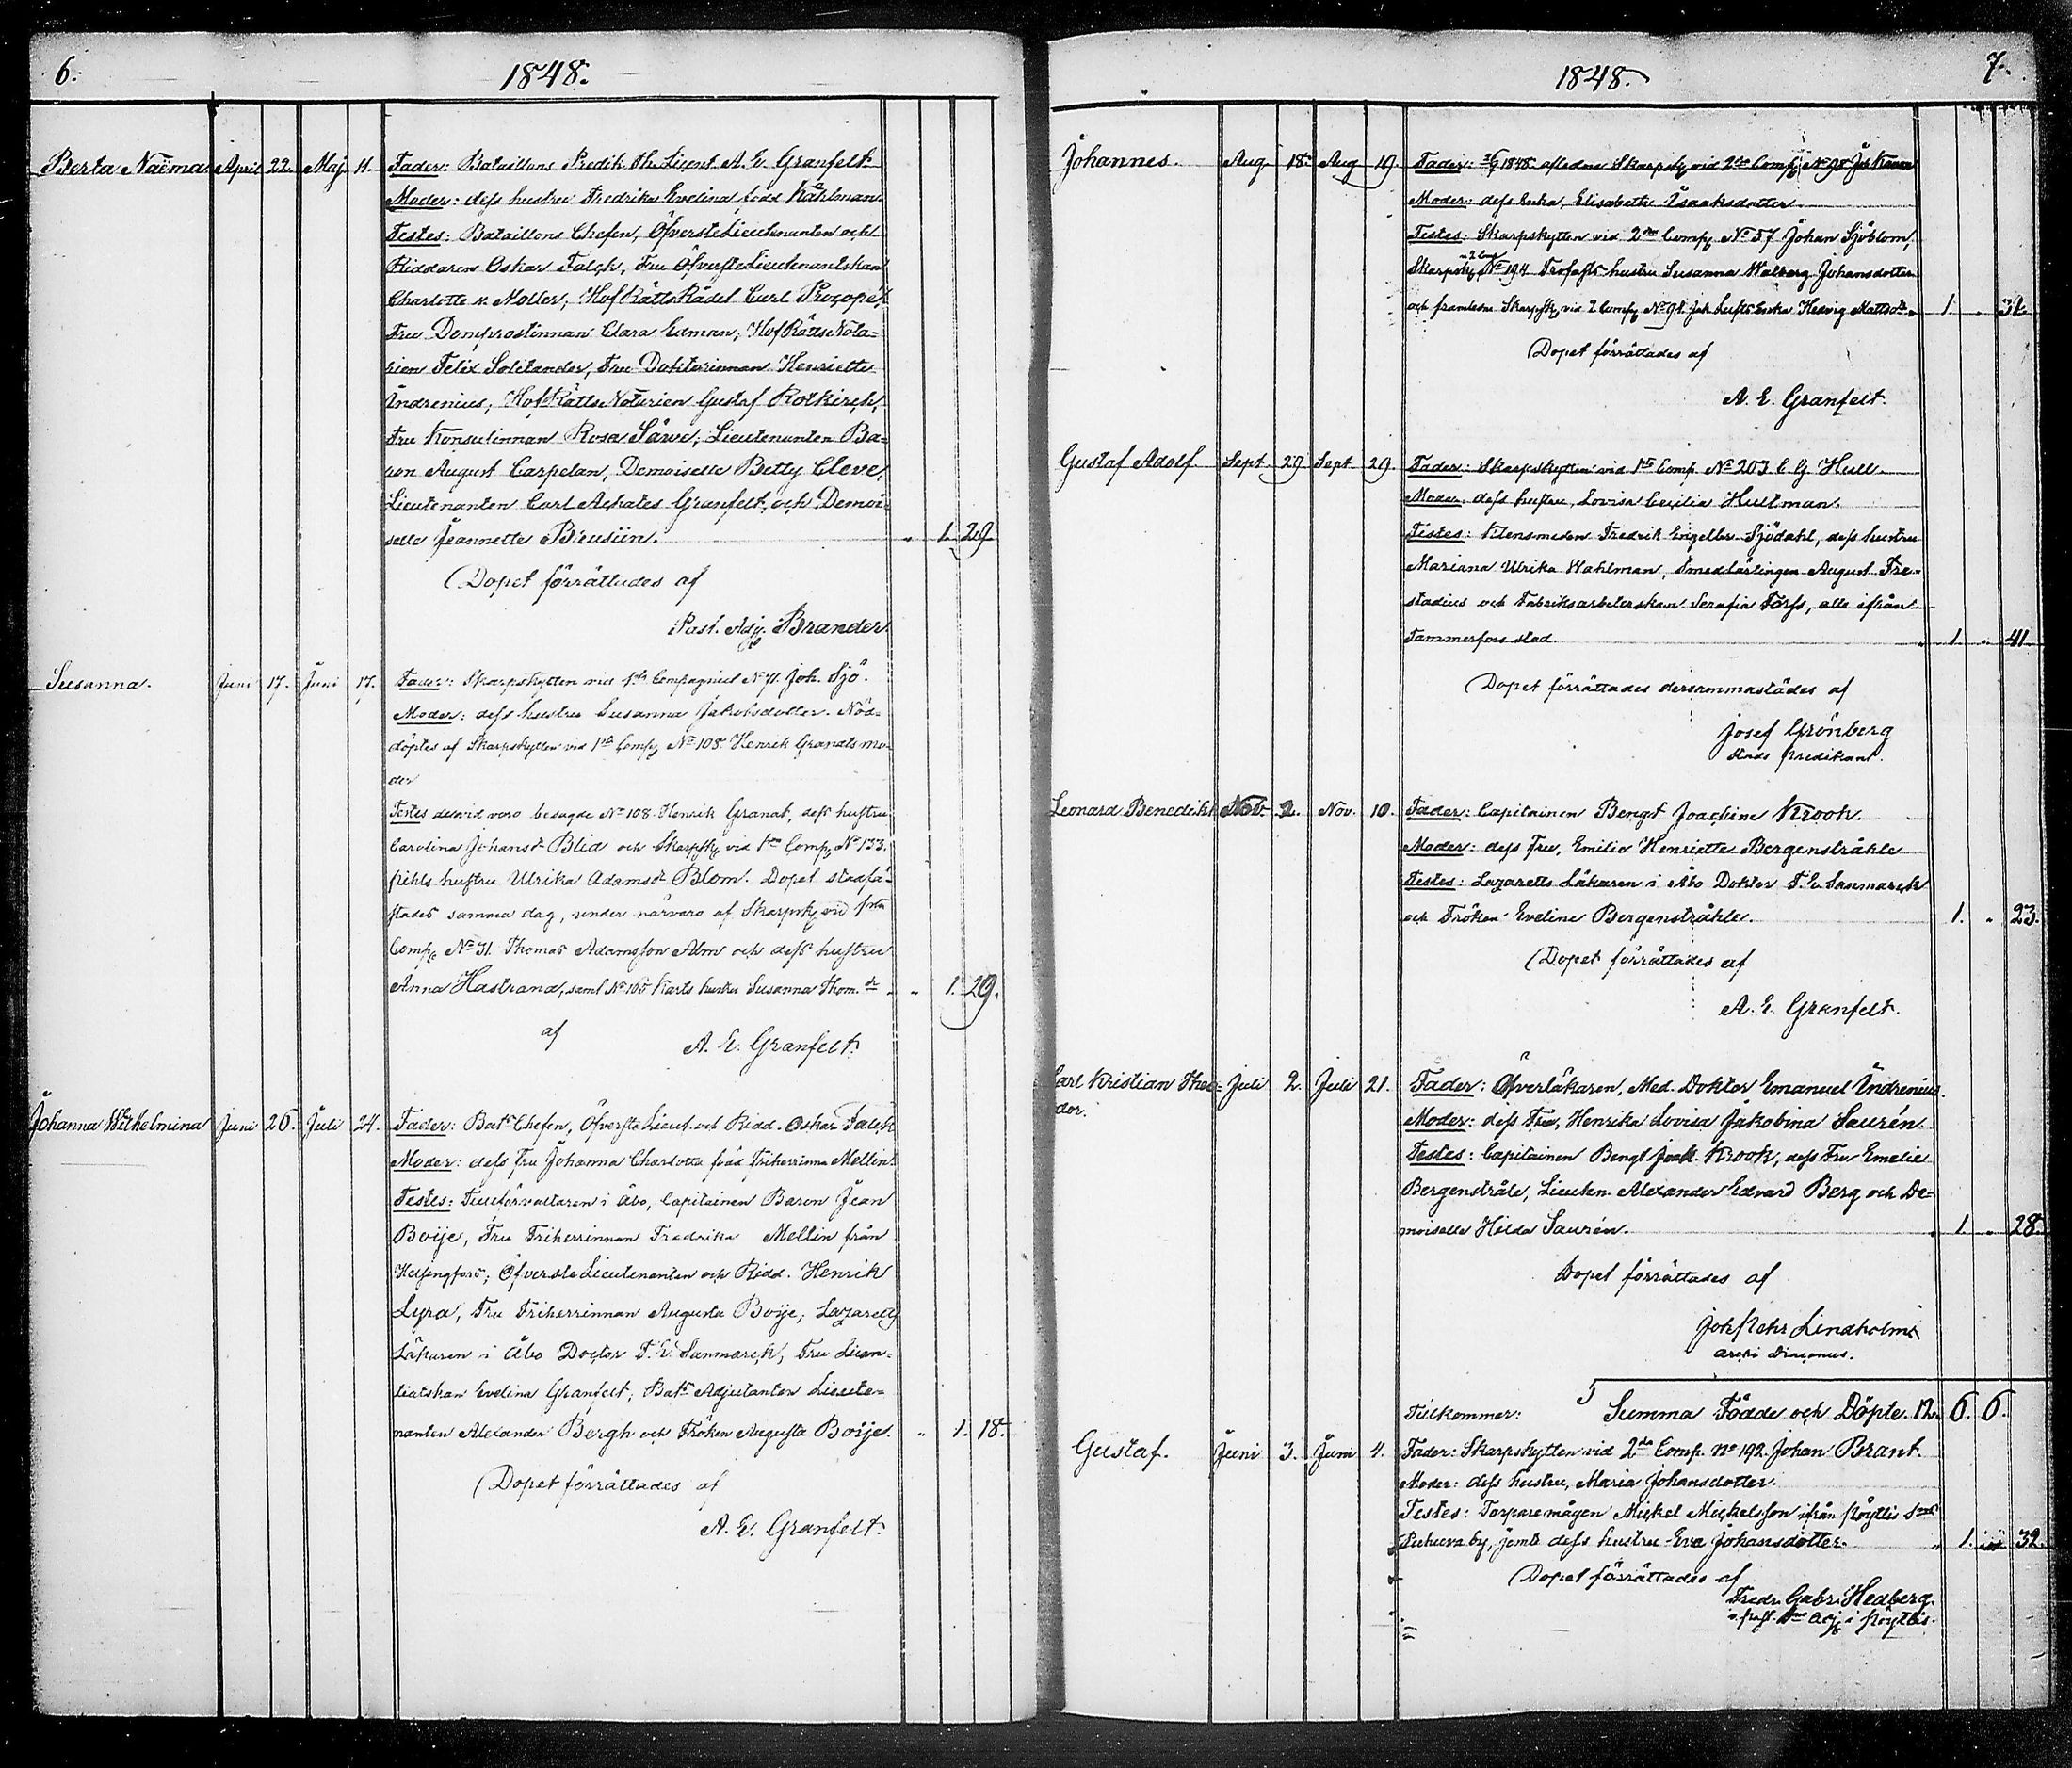 6.
1848.
Berta Naëma. April 22. Maj 11. Fader: Bataillons Predik. Th. Licent. A. E. Granfelt
Moder: dess hustru Fredrika Evelina född Kåhlman
Testes: Bataillons Chefen, ÖfversteLieutenanten och
Riddaren Oskar Falck, Fru ÖfversteLieutenantskan
Charlotte v. Moller, HofRättsRådet Carl Procopé,
Fru Domprostinnan Clara Edman, HofRätts Nota-
rien Felix Solitander, Fru Doktorinnan Henriette
Indrenius, HofRätts Notarien Gustaf Rotkirch,
Fru Konsulinnan Rosa Särve, Lieutenanten Ba-
ron August Carpelan, Demoiselle Betty Cleve,
Lieutenanten Carl Achates Granfelt och Demoi-
selle Jeannette Brusiin. " 1. 29
Dopet förrättades af
Past. Adj. Brander.
Susanna. Juni 17. Juni 17. Fader: Skarpskytten vid 1sta Compagniet No 71. Joh. Sjö.
Moder: dess hustru Susanna Jakobsdotter. Nöd-
döptes af Skarpskytten vid 1sta Comp. No 108. Henrik Granats mo-
der
Testes dervid voro besagde No 108 Henrik Granat, dess hustru
Carolina Johansdr Blid och Skarpsk. vid 1sta Comp. No 133.
hustru Ulrika Adamsdr Blom. Dopet stadfä-
stades samma dag, under närvaro af Skarpsk. vid 1sta
Comp. No 31. Thomas Adamsson Alm och dess hustru
Anna Hastrand, samt No 165 Karts hustru Susanna Thom.dr " 1. 29.
af
A. E. Granfelt.
Johanna Wilhelmina Juni 26. Juli 24. Fader: Bats Chefen, Öfverste Lieut. och Ridd. Oskar Falck
Moder: dess Fru Johanna Charlotta född Friherrinna Mellin.
Testes: Tullförvaltaren i Åbo, Capitainen Baron Jean
Boije, Fru Friherrinnan Fredrika Mellin från
Helsingfors; Öfverste Lieutenanten och Ridd. Henrik
Lyra, Fru Friherrinnan Augusta Boije, Lazaretts
Läkaren i Åbo Doctor F. E. Sanmarck, Fru Licen-
tiatskan Evelina Granfelt, Bats Adjutanten Lieute-
nanten Alexander Bergh och Fröken Augusta Boije. " 1. 18.
Dopet förrättades af
A. E. Granfelt.
1848.
7.
Johannes. Aug. 18. Aug. 19. Fader: 1848 aflidne Skarpsk. vid 2dra Comp. No 98
Moder: dess Enka, Elisabeth Isaaksdotter
Testes: Skarpskytten vid 2dra Comp. No 57 Johan Sjöblom,
Skarpsk. No 194 Trofasts hustru Susanna Walberg Johansdotter
och framledne Skarpsk. vid 2 Comp. No 91. Jak. Lusts Enka Hedvig Mattsdr 1. " 31.
Dopet förrättades af
A. E. Granfelt.
Gustaf Adolf. Sept. 29. Sept. 29. Fader: Skarpskytten vid 1sta Comp. No 203 C. G. Hull.
Moder: dess hustru, Lovisa Cecilia Hultman.
Testes: Fredrik Engelbr. Sjödahl, dess hustru
Mariana Ulrika Wahlman, Smedlärlingen August Fre-
stadius och Fabriksarbeterskan Serafia Forss, alle ifrån
Tammerfors stad. " 1. " 41.
Dopet förrättades dersammastädes af
Josef Grönberg
Stads Predikant.
Leonard Benedikt Nov. 2. Nov. 10. Fader: Capitainen Bengt Joachim Krook.
Moder: dess Fru, Emilie Henriette Bergenstråhle
Testes: Lazaretts Läkaren i Åbo Doktor F. E. Sanmarck
och Fröken Eveline Bergenstråhle. 1. " 23.
Dopet förrättades af
A. E. Granfelt.
Carl Kristian Theo- Juli 2. Juli 21. Fader: Öfverläkaren, Med. Doktor Emanuel Indrenius.
dor.
Moder: dess Fru, Henrika Lovisa Jakobina Saurén.
Testes: Capitainen Bengt Joach. Krook, dess Fru Emelie
Bergenståle, Lieuten. Alexander Edvard Berg och De-
moiselle Hilda Saurén. " 1. " 28.
Dopet förrättades af
Joh Lindholm
Archi Diaconus.
Tillkommer: Summa Födde och Döpte. 12. 6. 6.
Gustaf. Juni 3. Juni 4. Fader: Skarpskytten vid 2dra Comp. No 192. Johan Brant.
Moder: dess hustru, Maria Johansdotter.
Testes: Torparemågen Mickel Mickelsson ifrån Pöyttis Snt
by, jemte dess hustru Eva Johansdotter. " 1. " 32.
Dopet förrättades af
Fredr. Gabr. Hedberg.
v. Past. Adj. i Pöyttis.